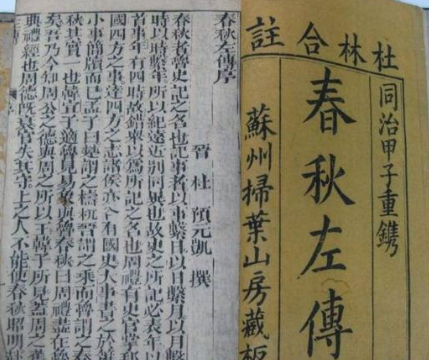 杜林合註
同治甲子重鐫
春秋左傳
蘇州掃葉山房藏板
春秋左傳序
晉 杜 預元凱 撰
春秋者魯史記之名也記事者以事繫日以日繫月以月繫
時以時繫年所以紀遠近別同異也故史之所記必表年以
首事年有四時故錯舉以為所記之名也周禮有史官掌邦
國四方之事達四方之志諸侯亦各有國史大事書之於策
小事簡牘而已孟子曰楚謂之檮杌晉謂之乘而魯謂之春
秋其實一也韓宣子適魯見易象與魯春秋曰周禮盡在魯
矣吾乃今知周公之德與周之所以王韓子所見蓋周之舊
典禮經也周德既衰官失其守上之人不能使春秋昭明